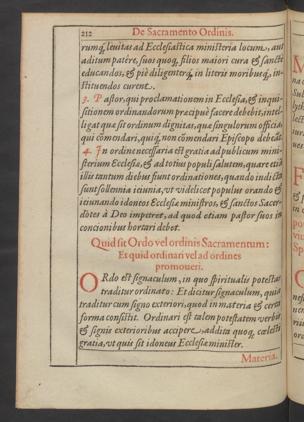 212 De Sacramento Ordinis.
rumq́, leuitas ad Ecclesiastica ministeria locum, aut
aditum patére, suos quoq, filios maiori cura & sanctè
educandos, & piè diligenterq́, in literis moribusq́, in-
stituendos curent.
3. Pastor, qui proclamationem in Ecclesia, & inqui-
sitionem ordinandorum præcipuè facere debebit, intel-
ligat que sit ordinum dignitas, que singulorum officia,
qui cōmendari, quiq́, non cōmendari Episcopo debeāt.
4. In ordine necessaria est gratia ad publicum mini-
sterium Ecclesiæ, & ad totius populi salutem, quare etiā
illis tantum diebus fiunt ordinationes, quando indicta
sunt sollemnia ieiunia, vt videlicet populus orando &
ieiunando idoneos Ecclesiæ ministros, & sanctos Sacer-
dotes à Deo impetret, ad quod etiam pastor suos in
concionibus hortari debet.
Quid sit Ordo vel ordinis Sacramentum:
Et quid ordinari vel ad ordines
promoueri.
ORdo est signaculum, in quo spiritualis potestas
traditur ordinato: Et dicitur signaculum, quia
traditur cum signo exteriori, quod in materia & certa
forma consistit. Ordinari est talem potestatem verbis
& signis exterioribus accipere, addita quoq, cœlesti
gratia, vt quis sit idoneus Ecclesiæ minister.
Materia.